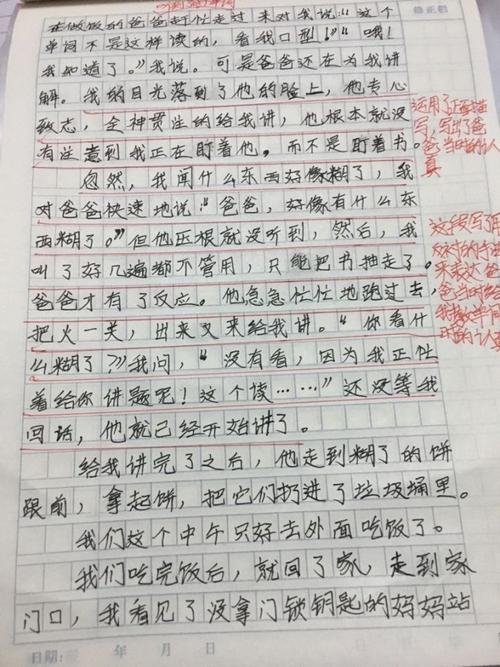 在做饭的爸爸赶忙走过来对我说:“这个
单词不是这样读的,看我口型!”“哦!
我知道了。”我说。可是爸爸还在为我讲
解。我的目光落到了他的脸上,他专心
致志,全神贯注的给我讲,他根本就没
有注意到我正在盯着他。而不是盯着书。
忽然,我闻什么东西好像糊了,我
对爸爸快速地说:“爸爸,好像有什么东
西糊了。”但他压根就没听到,然后,我
叫了好几遍都不管用,只能把书抽走了。
爸爸才有了反应。他急急忙忙地跑过去,
把火一关,出来又来给我讲。“你看什
么糊了?”我问,“没有看,因为我正忙
着给你讲题呢!这个读……”还没等我
回话,他就已经开始讲了。
给我讲完了之后,他走到糊了的饼
跟前,拿起饼,把它们扔进了垃圾桶里。
我们这个中午只好去外面吃饭了。
我们吃完饭后,就回了家,走到家
门口,我看见了没拿门锁钥匙的妈妈站
运用了正面描
写,写出了爸
爸当时的认
真
这段写了用
反衬的手法
来表达爸
爸当时给
我讲单词
时的认真
日期: 年 月 日